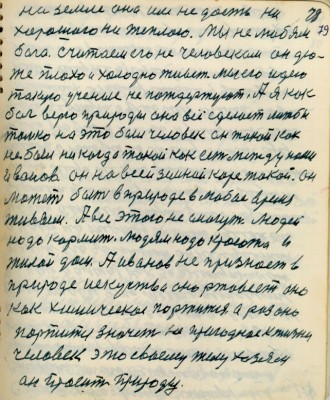 на земле она им не дасть ни 78
хорошого ни теплого. Мы не любим 79
бога. Считаем его не человеком он то
же плохо и холодно живет. Мы его идею
такую учение не поддержует. А я как
бог веро природы она всё сделает лишь бы
только на это был человек он такой как
не был никогда такой как есть между нами
Иванов он на всей земной коре такой. он
может быть в природе в любое время
живым. А все этого не смогут. Людей
надо кормит. Людям надо красота и
жилой дом. А иванов не признает в
природе искуства оно ржавеет оно
как химическое портится а раз оно
портится значит не пригодное к жизни
человек это своему телу хозяин
он просит природу.